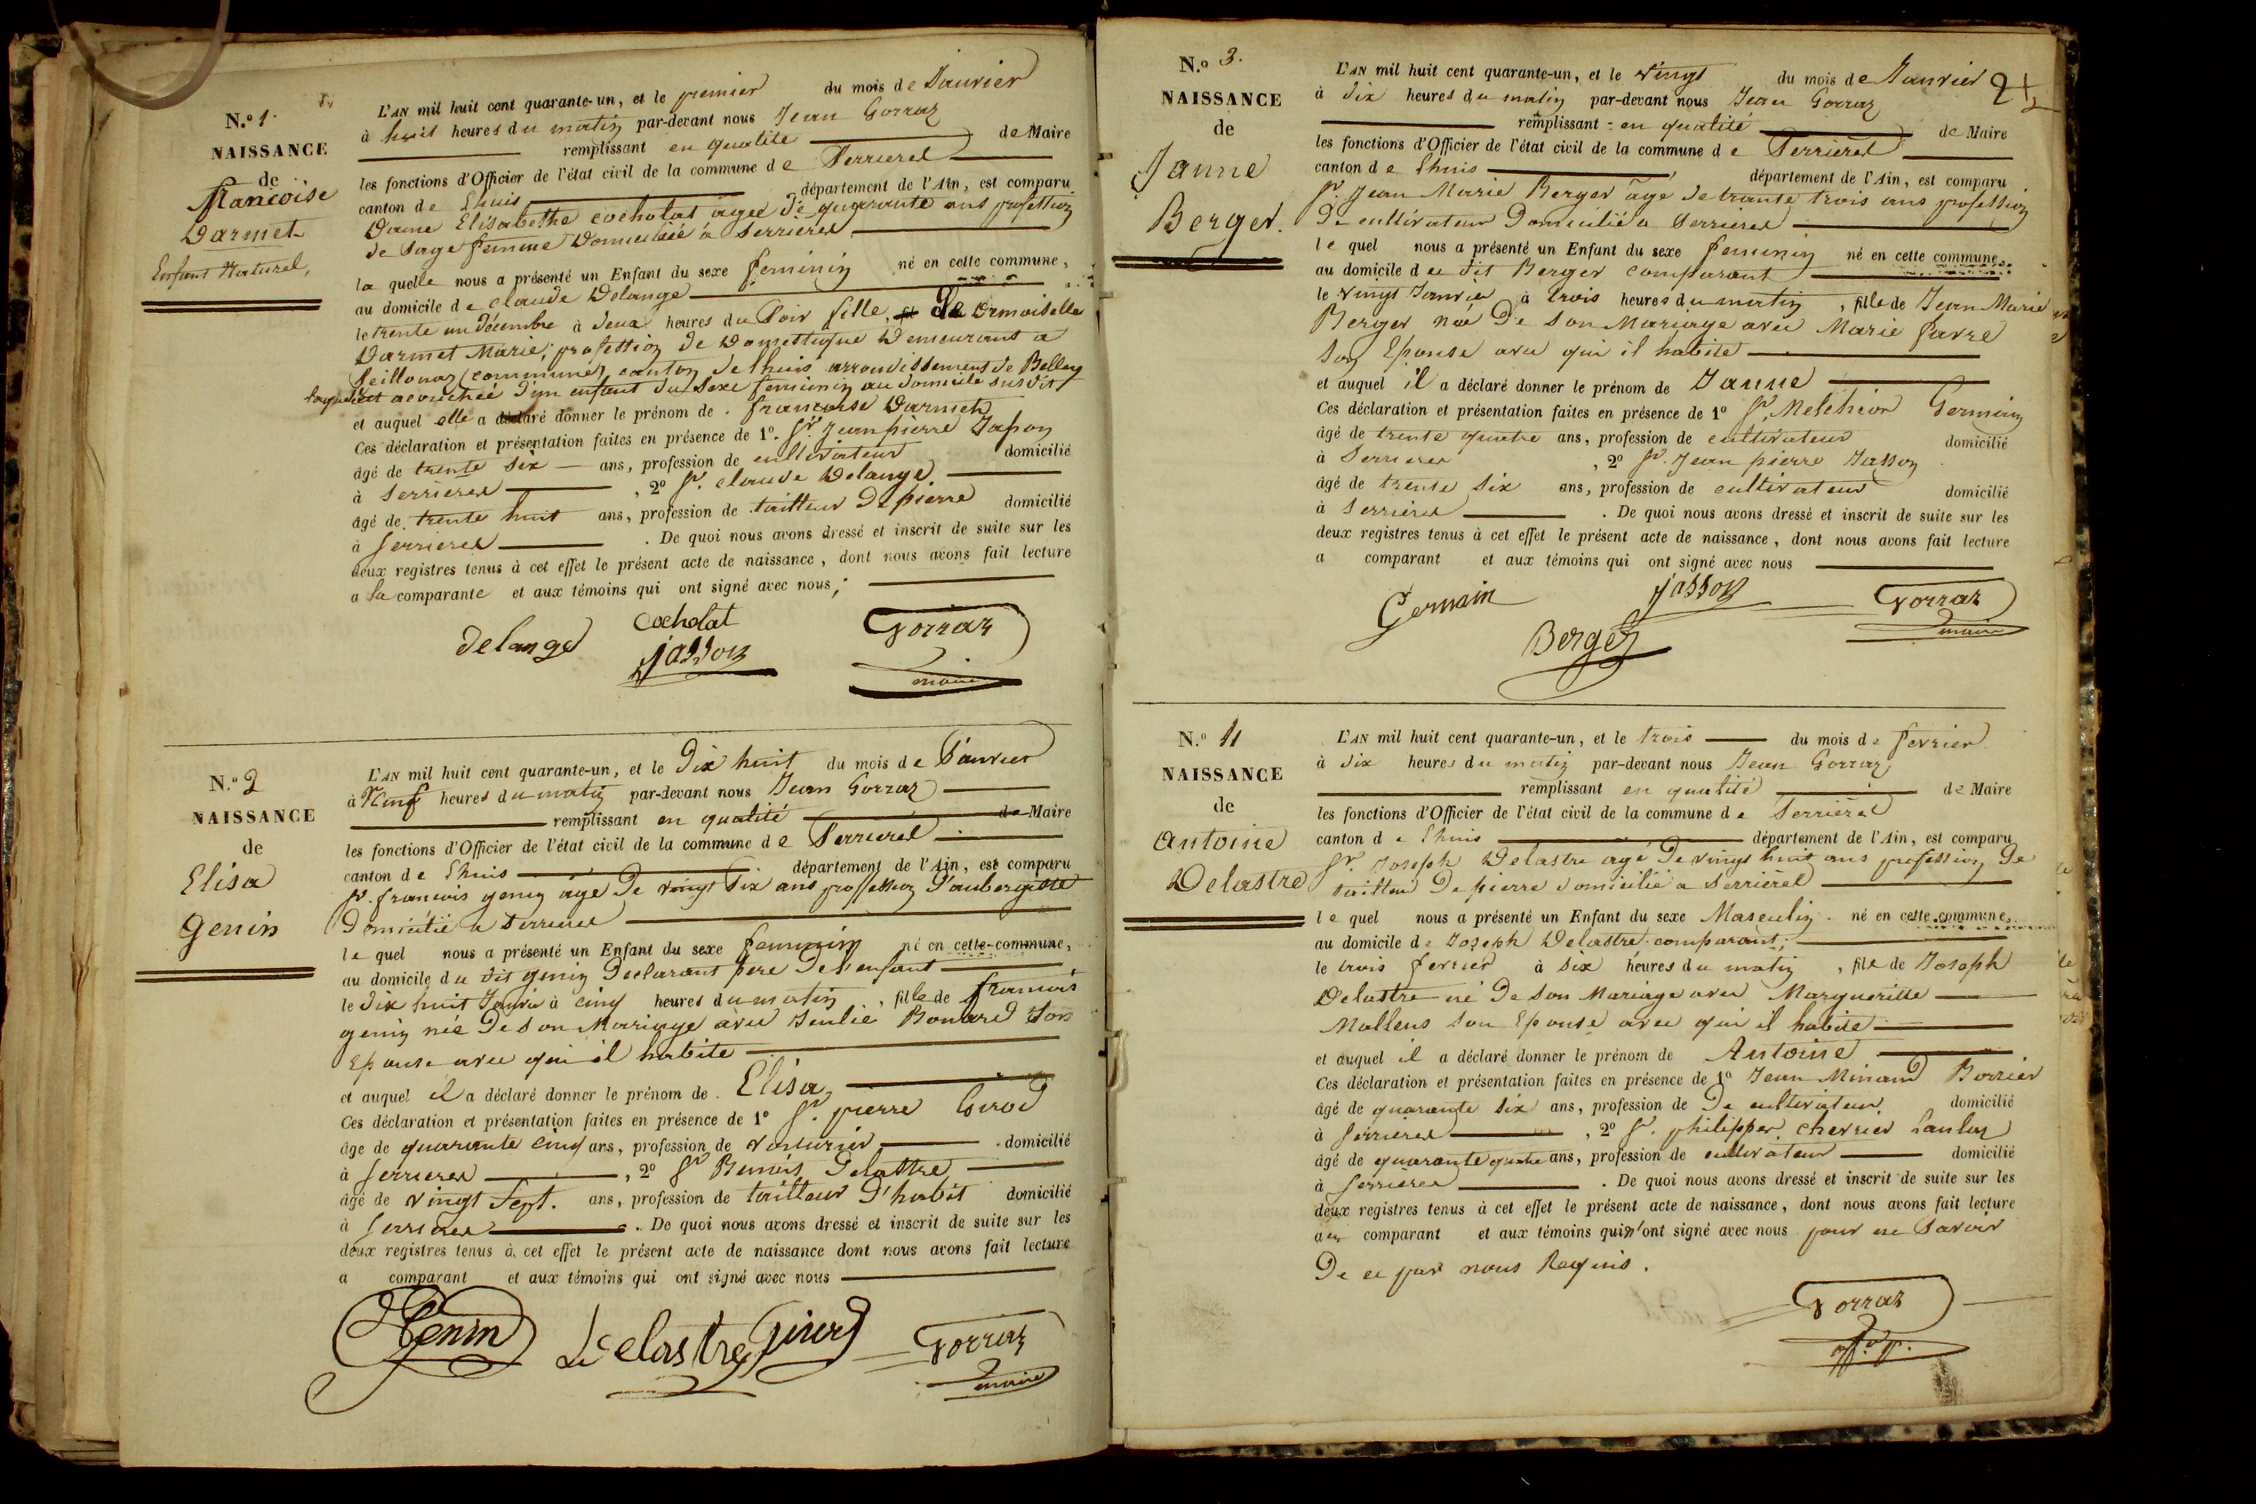 N.o 1.
NAISSANCE
de
francoise
Darmet
Enfant Naturel,
L'AN mil huit cent quarante-un, et le premier du mois de Janvier
à huit heures du matin par-devant nous Jean Gorraz
remplissant en qualité de Maire
les fonctions d'Officier de l'état civil de la commune de Serrieres
canton de Lhuis département de l'Ain, est comparu
Dame Elisabethe cocholat agée de quarante ans profession
de Sage femme Domiciliée a Serrieres
la quelle nous a présenté un Enfant du sexe feminin né en cette commune,
au domicile de claude Delange
le trente un décembre à deux heures du Soir fille, de demoiselle
Darmet Marie, profession de Domestique Demeurant a
Seillonaz (commune) canton de lhuis arrondissement de Belley
laquelle est acouchée d'un enfant du Sexe feminin au domicile susdit
et auquel elle a déclaré donner le prénom de francoise Darmet
Ces déclaration et présentation faites en présence de 1o. Sr. Jean pierre Jason
âgé de trente Six ans, profession de cultivateur domicilié
à Serrieres , 2o Sr. claude Delange
âgé de trente huit ans, profession de tailleur De pierre domicilié
à Serrieres . De quoi nous avons dressé et inscrit de suite sur les
deux registres tenus à cet effet le présent acte de naissance, dont nous avons fait lecture
a la comparante et aux témoins qui ont signé avec nous;
Delange cocholat jasson Gorraz
maire
N.o 2
NAISSANCE
de
Elisa
genin
L'AN mil huit cent quarante-un, et le Dix huit du mois de Janvier
à Neuf heures du matin par-devant nous Jean Gorraz
remplissant en qualité de Maire
les fonctions d'Officier de l'état civil de la commune de Serrieres
canton de Lhuis département de l'Ain, est comparu
Sr. francois genin âgé De vingt Six ans proffession d'aubergiste
Domicilié a Serrieres
le quel nous a présenté un Enfant du sexe feminin né en cette commune,
au domicile du dit genin Declarant pere De l'enfant
le dix huit Janvier à cinq heures du matin, fille de francois
genin née De son Mariage avec Julie Bonard Son
Epouse avec qui il habite
et auquel il a déclaré donner le prénom de Elisa
Ces déclaration et présentation faites en présence de 1o Sr. pierre Girod
âgé de quarante cinq ans, profession de voiturier domicilié
à Serrieres , 2o Sr Delastre
âgé de vingt Sept. ans, profession de tailleur D'habit domicilié
à Serrieres . De quoi nous avons dressé et inscrit de suite sur les
deux registres tenus à cet effet le présent acte de naissance dont nous avons fait lecture
a comparant et aux témoins qui ont signé avec nous
Genin Delastre Girod Gorraz
maire
N.o 3.
NAISSANCE
de
Janne
Berger.
L'AN mil huit cent quarante-un, et le vingt du mois de Janvier
à dix heures du matin par-devant nous Jean Gorraz
remplissant en qualité de Maire
les fonctions d'Officier de l'état civil de la commune de Serrieres
canton de Lhuis département de l'Ain, est comparu
Sr. Jean Marie Berger âgé de trante trois ans profession
De cultivateur Domicilié a Serrieres
le quel nous a présenté un Enfant du sexe feminin né en cette commune,
au domicile du dit Berger comparant
le vingt Janvier à trois heures du matin, fille de Jean Marie
Berger née De Son Mariage avec Marie favre
Son Epouse avec qui il habite
et auquel il a déclaré donner le prénom de Janne
Ces déclaration et présentation faites en présence de 1o Sr. Melchior Germain
âgé de trente quatre ans, profession de cultivateur domicilié
à Serrieres , 2o Sr. Jean pierre Jasson
âgé de trente Six ans, profession de cultivateur domicilié
à Serrieres . De quoi nous avons dressé et inscrit de suite sur les
deux registres tenus à cet effet le présent acte de naissance, dont nous avons fait lecture
a comparant et aux témoins qui ont signé avec nous
Germain jasson Gorraz
Berger maire
N.o 4
NAISSANCE
de
Antoine
Delastre
L'AN mil huit cent quarante-un, et le trois du mois de fevrier
à dix heures du matin par-devant nous Jean Gorraz
remplissant en qualité de Maire
les fonctions d'Officier de l'état civil de la commune de Serrieres
canton de Lhuis département de l'Ain, est comparu
Sr. Joseph Delastre agé De vingt huit ans profession De
tailleur De pierre domicilié a Serrieres
le quel nous a présenté un Enfant du sexe Masculin né en cette commune,
au domicile de Joseph Delastre comparant;
le trois fevrier à Six heures du matin, fils de Joseph
Delastre né De Son Mariage avec Margueritte
Mallens Son Epouse avec qui il habite
et auquel il a déclaré donner le prénom de Antoine
Ces déclaration et présentation faites en présence de 1o Jean Minand Borrier
âgé de quarante Six ans, profession de De cultivateur domicilié
à Serrieres , 2o Sr. philipper chervier Laulaz
âgé de quarante quatre ans, profession de cultivateur domicilié
à Serrieres . De quoi nous avons dressé et inscrit de suite sur les
deux registres tenus à cet effet le présent acte de naissance, dont nous avons fait lecture
au comparant et aux témoins qui n'ont signé avec nous pour ne Savoir
De ce par nous Requis.
Gorraz